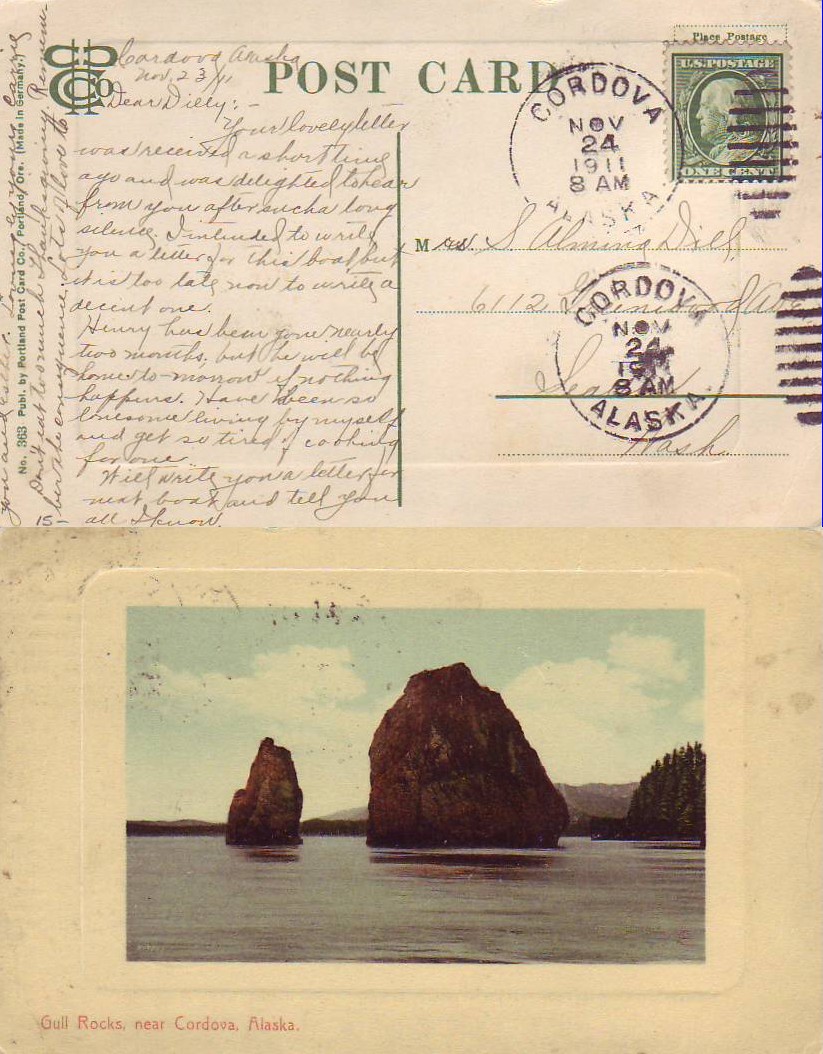 Place Postage
POST CARD
U.S. POSTAGE
ONE CENT
CORDOVA
NOV
24
1911
8 AM
ALASKA
CORDOVA
NOV
24
8 AM
ALASKA.
Cordova Alaska
Nov. 23/11
Dear Dilly:-
Your lovely letter
was received a short time
ago and was delighted to hear
from you after such a long
silence. I intended to write
you a letter for this boat but
it is too late now to write a
decent one.
Henry has been gone nearly
two months, but he will be
home to-morrow if nothing
happens. Have been so
lonesome living by myself
and get so tired of cooking
for one.
Will write you a letter for
next boat and tell you
all I know.
Don't eat too much Thanksgiving. Remem-
ber the consequence. Lots of love to
you and Esther. Lovingly yours, Carrie
Mrs. S Almina Dill,
6112 Ave
Wash.
No. 363 Publ. by Portland Post Card Co., Portland, Ore. (Made in Germany.)
15-
Gull Rocks, near Cordova, Alaska.